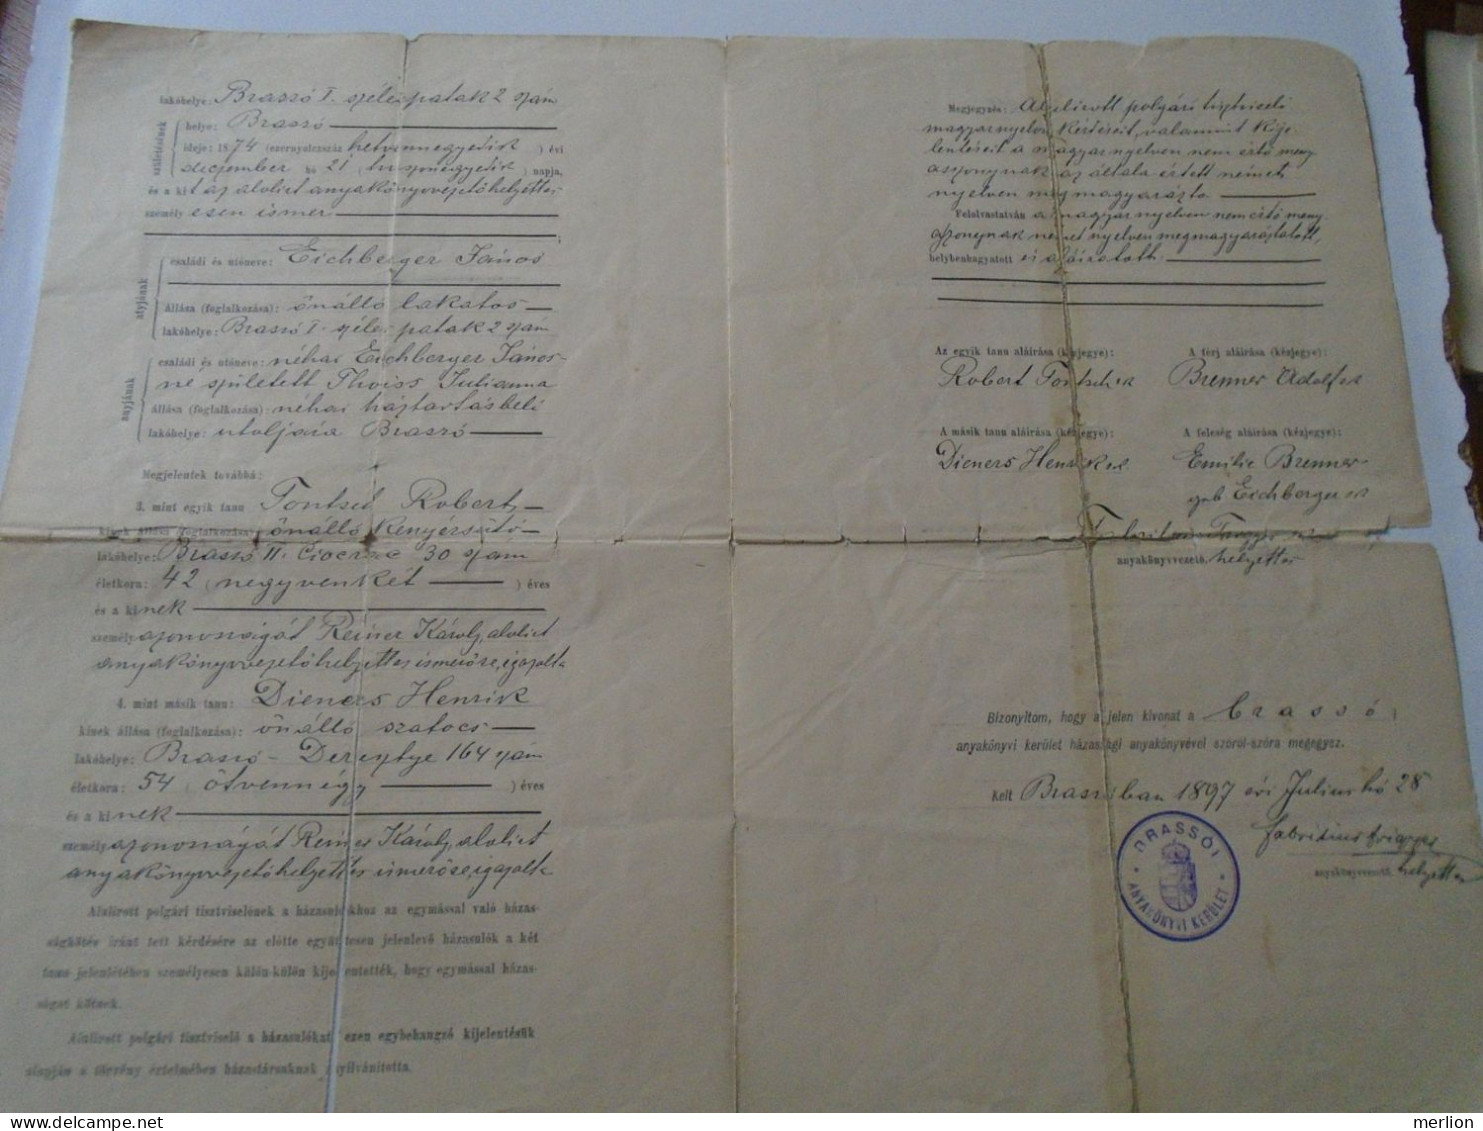 lakóhelye: Brassó I. széles patak 2 szám
születésének
helye: Brassó
ideje: 1874 (ezernyolczszáz hetvennegyedik) évi
deczember hó 21 (huszonegyedik) napja,
és a kit az alolirt anyakönyvvezetőhelyettes
személyesen ismer.
atyjának
családi és utóneve: Eichberger János
állása (foglalkozása): önálló lakatos
lakóhelye: Brassó I. széles patak 2 szám
anyjának
családi és utóneve: néhai Eichberger János-
né született Thoiss Julianna
állása (foglalkozása): néhai háztartásbeli
lakóhelye: utoljára Brassó
Megjelentek továbbá:
3. mint egyik tanu Robert
kinek állása (foglalkozása) önálló kenyérsütő
lakóhelye: Brassó II. 30 szám
életkora: 42 (negyvenkét) éves
és a kinek
személyazonosságát Reiner Károly, alolirt
anyakönyvvezetőhelyettes ismerőse, igazolta
4. mint másik tanu: Dieners Henrik
kinek állása (foglalkozása): önálló szatocs
lakóhelye: Brassó - 164 szám
életkora: 54 (ötvennégy) éves
és a kinek
személyazonosságát Reiner Károly, alolirt
anyakönyvvezetőhelyettes ismerőse, igazolta
Alulirott polgári tisztviselőnek a házasulókhoz az egymással való házas-
ságkötés iránt tett kérdésére az előtte együttesen jelenlevő házasulók a két
tanu jelenlétében személyesen külön-külön kijelentették, hogy egymással házas-
ságot kötnek.
Alulirott polgári tisztviselő a házasulókat ezen egybehangzó kijelentésük
alapján a törvény értelmében házastársaknak nyilvánította.
Megjegyzés: Alulirott polgári tisztviselő
magyarnyelvű kérdéseit, valamint kije-
lentéseit a magyarnyelven nem értő meny
asszonynak az általa értett német
nyelven megmagyarázta.
Felolvastatván a magyarnyelven nem értő meny
asszonynak német nyelven megmagyaráztatott,
helybenhagyatott és aláiratott.
Az egyik tanu aláírása (kézjegye):
A férj aláírása (kézjegye):
Robert
Brenner Adolf sk
A másik tanu aláírása (kézjegye):
A feleség aláírása (kézjegye):
Dieners Henrik sk
Emilie Brenner
geb Eichberger sk
anyakönyvvezető, helyettes
Bizonyítom, hogy a jelen kivonat a brassó i
anyakönyvi kerület házassági anyakönyvével szóról-szóra megegyez.
Kelt Brassóban 1897 évi Julius hó 28
Fabritius Frigyes
anyakönyvvezető helyettes
BRASSÓI
ANYAKÖNYVI KERÜLET
merlion